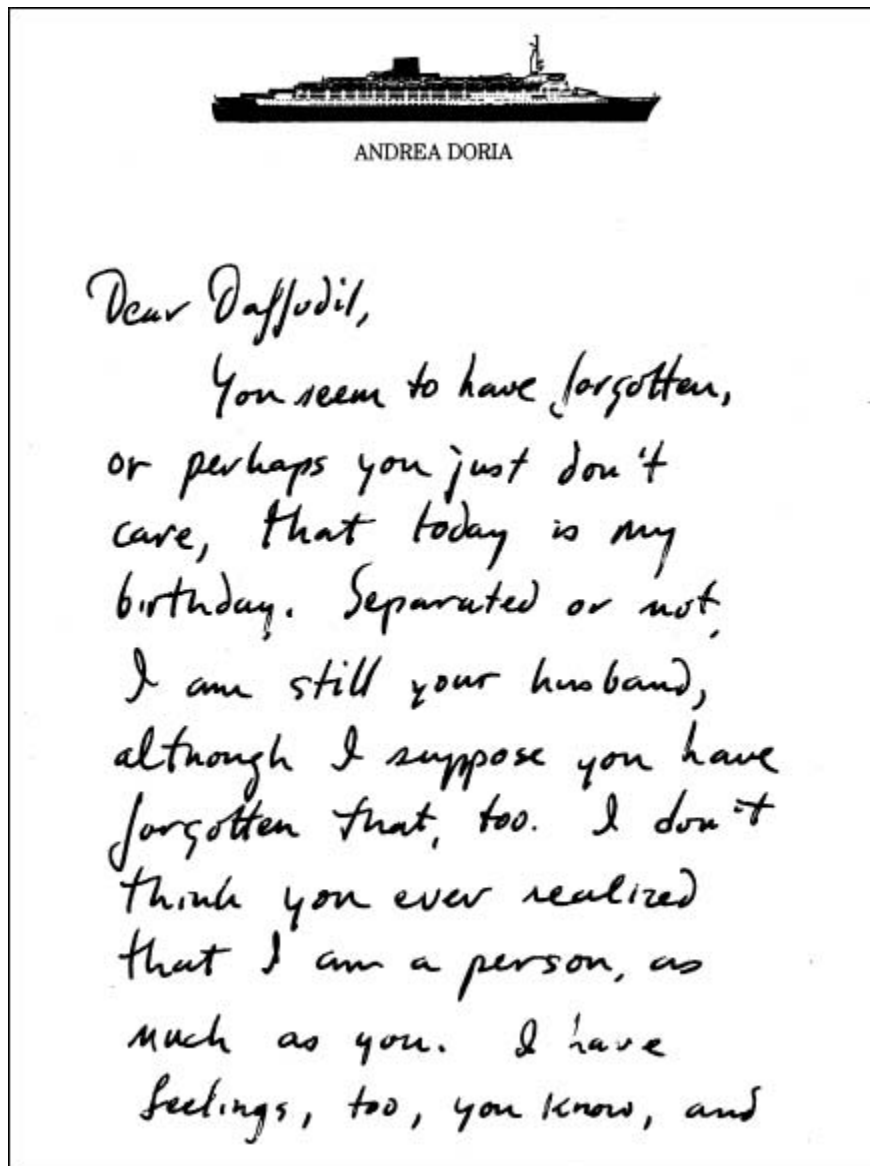 ANDREA DORIA
Dear Daffodil,
You seem to have forgotten,
or perhaps you just don't
care, that today is my
birthday. Separated or not,
I am still your husband,
although I suppose you have
forgotten that, too. I don't
think you ever realized
that I am a person, as
much as you. I have
feelings, too, you know, and